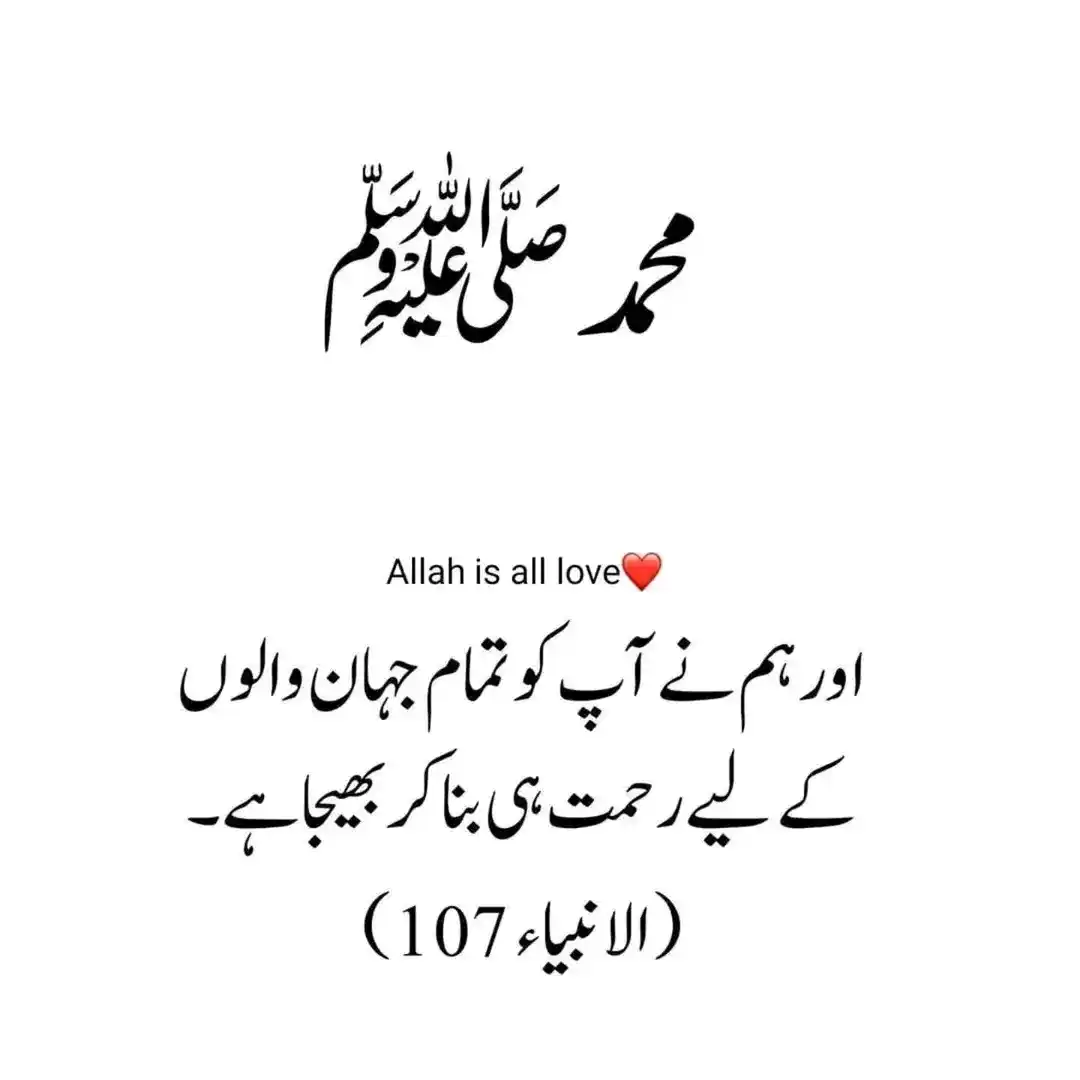 محمد صَلَّی اللہ عَلَیْہِ وَسَلَّم
Allah is all love❤️
اور ہم نے آپ کو تمام جہان والوں
کے لیے رحمت ہی بنا کر بھیجا ہے۔
(الانبیاء 107)